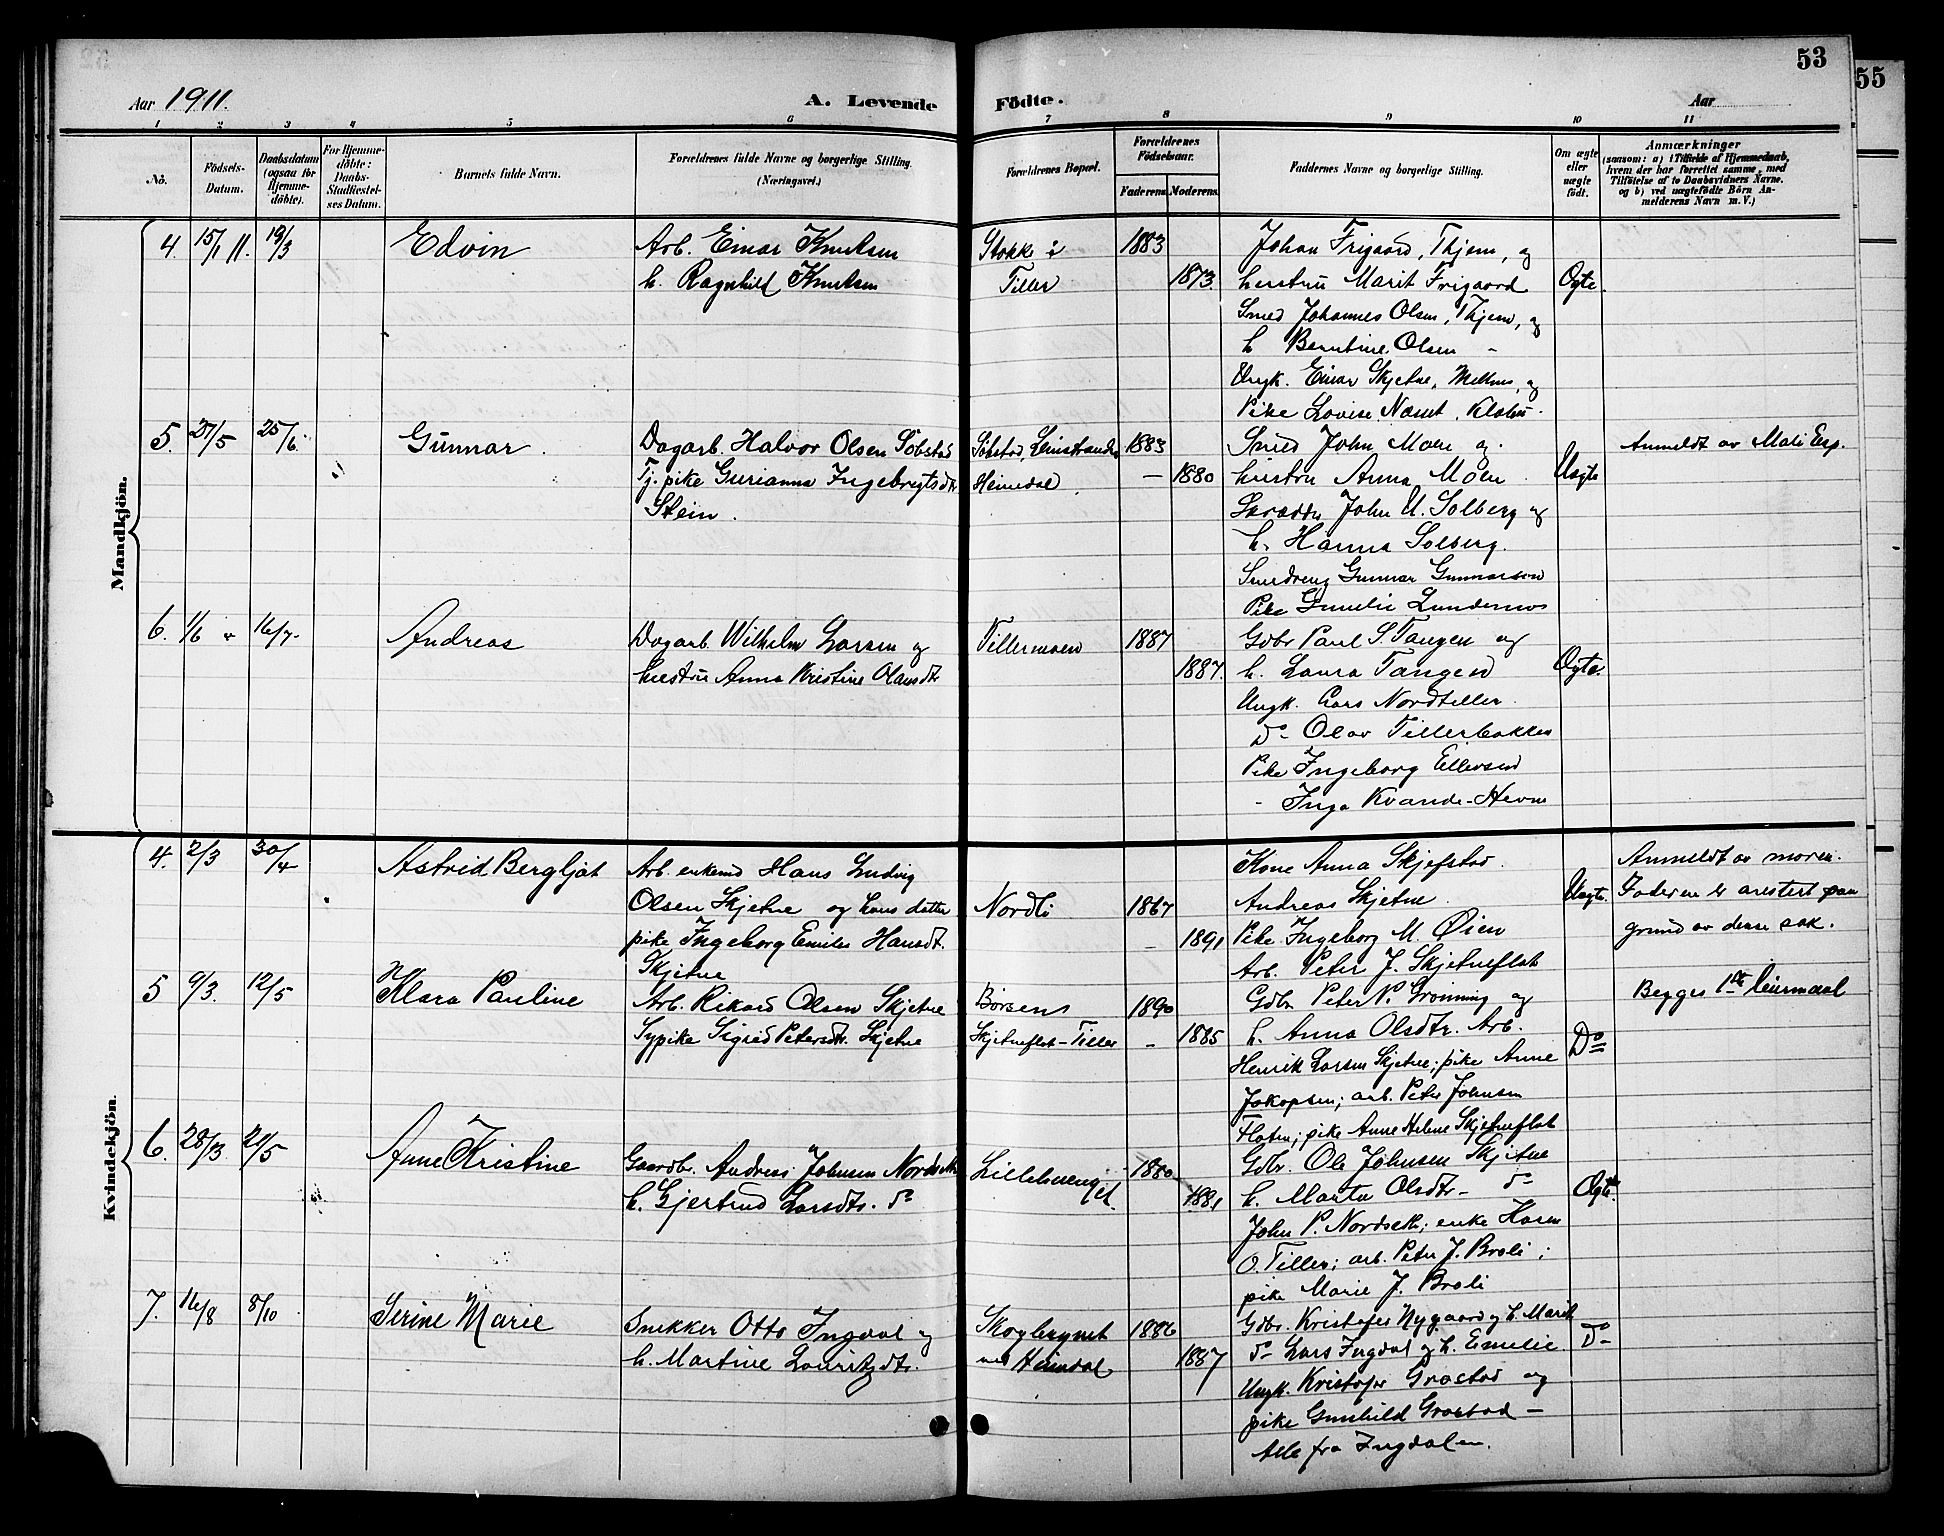 53
55
Aar 1911.
A. Levende Födte.
Aar
1 2 3 4 5 6 7 8 9 10 11
No.
Födsels-Datum.
Daabsdatum (ogsaa for Hjemmedöbte).
For Hjemmedöbte: Daabs-Stadfæstelses Datum.
Barnets fulde Navn.
Forældrenes fulde Navne og borgerlige Stilling.
(Næringsvei.)
Forældrenes Bopæl.
Forældrenes Födselsaar.
Faderens. Moderens.
Faddernes Navne og borgerlige Stilling.
Om ægte eller uægte födt.
Anmærkninger
(saasom: a) i Tilfælde af Hjemmedaab, hvem der har forrettet samme, med Tilföielse af to Daabsvidners Navne, og b) ved uægtefödte Börn Anmelderens Navn m. V.)
Mandkjön.
4. 15/1 11. 19/3 Edvin
Arb. Einar Knutsen
h. Ragnhild Knutsen
Stokke i
Tiller
1883
1873.
Johan Frigaard, Thjem, og
hustru Marit Frigaard
Smed Johannes Olsen, Thjem, og
h Berntine Olsen -
Ungk. Einar Skjetne, Melhus, og
Pike Lovise Næset, Klæbu.
Ogte.
5. 27/5 25/6. Gunnar.
Dagarb. Halvor Olsen Sobstad
Tj. pike Gurianna Ingebrigtsdtr
Stein.
Sobstad, Leinstranden
Heimdal.
1883
- 1880
Smed John Moen og
hustru Anna Moen.
Skrædder John U. Solberg og
h. Hanna Solberg.
Smedreng Gunnar Gunnarson
Pike Emelie Lundemos
Uegte
Anmeldt av Mali Esp.
6. 1/6 " 16/7. Andreas
Dagarb. Wilhelm Larsen og
hustru Anna Kristine Olausdtr
Tillermoen
1887
1887.
Gdbr Paul S. Tangen og
h. Laura Tangen
Ungk. Lars Nordtiller.
Do Olav Tillerbakken
Pike Ingeborg Ellevsen
- Inga Kvande - Hevne
Ogte.
Kvindekjön.
4. 2/3 30/4 Astrid Bergljot
Arb. enkemd Hans Ludvig
Olsen Skjetne og hans datter
pike Ingeborg Emilie Hansdt.
Skjetne
Nordli
1867
- 1891
Kone Anna Skjefstad.
Andreas Skjetne.
Pike Ingeborg M. Øien
Arb. Peter J. Skjetneflat
Uegte.
Anmeldt av moren.
Faderen er arestert paa
grund av denne sak.
5 9/3. 12/5 Klara Pauline
Arb. Rikard Olsen Skjetne
Sypike Sigrid Petersdtr. Skjetne
Børsen
Skjetneflat - Tiller
1890
- 1885
Gdbr. Peter P. Grønning og
h. Anna Olsdtr. Arb.
Henrik Larsen Skjetne; pike Anne
Jakopsen; arb. Peter Johnsen
Floten; pike Anne Helene Skjetneflat
Do
Begges 1ste leiermaal
6. 28/3. 21/5 Anne Kristine
Gaardbr. Andreas Johnsen Nordset
h. Gjertrud Larsdtr. do
1880
1881
Gdbr. Ole Johnsen Skjetne
h. Marta Olsdtr - do
John P. Nordseth; enke Karen
O. Tiller; arb. Peter J. Brali;
pike Marie J. Brali
Ogte.
7. 16/8 8/10. Serine Marie
Snekker Otto Ingdal og
h. Martine Lauritzdtr.
Skogbrynet
ved Heimdal
1886
1887
Gdbr. Kristofer Nygaard og h. Marit
do Lars Ingdal og h. Emelie
Ungk. Kristofer Grostad og
pike Gunhild Grostad -
Alle fra Ingdalen.
Do